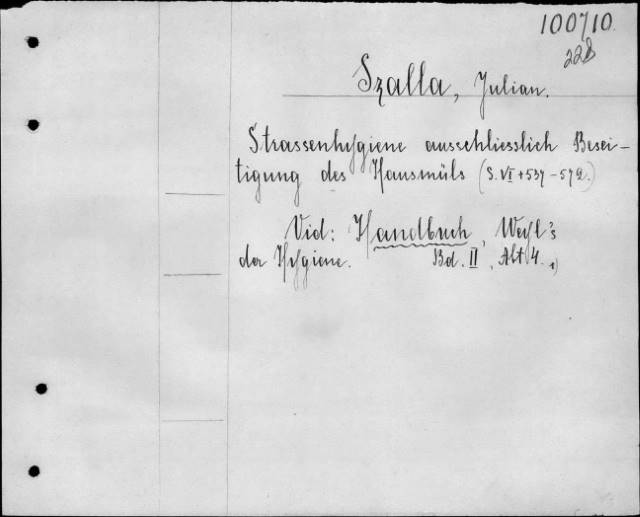 100710.
228
Szalla, Julian.
Strassenhygiene ausschliesslich Besei-
tigung des Hausmüls (S. VI + 537 - 572.)
Vid: Handbuch, Weyl's
der Hygiene. Bd. II, Abt 4.